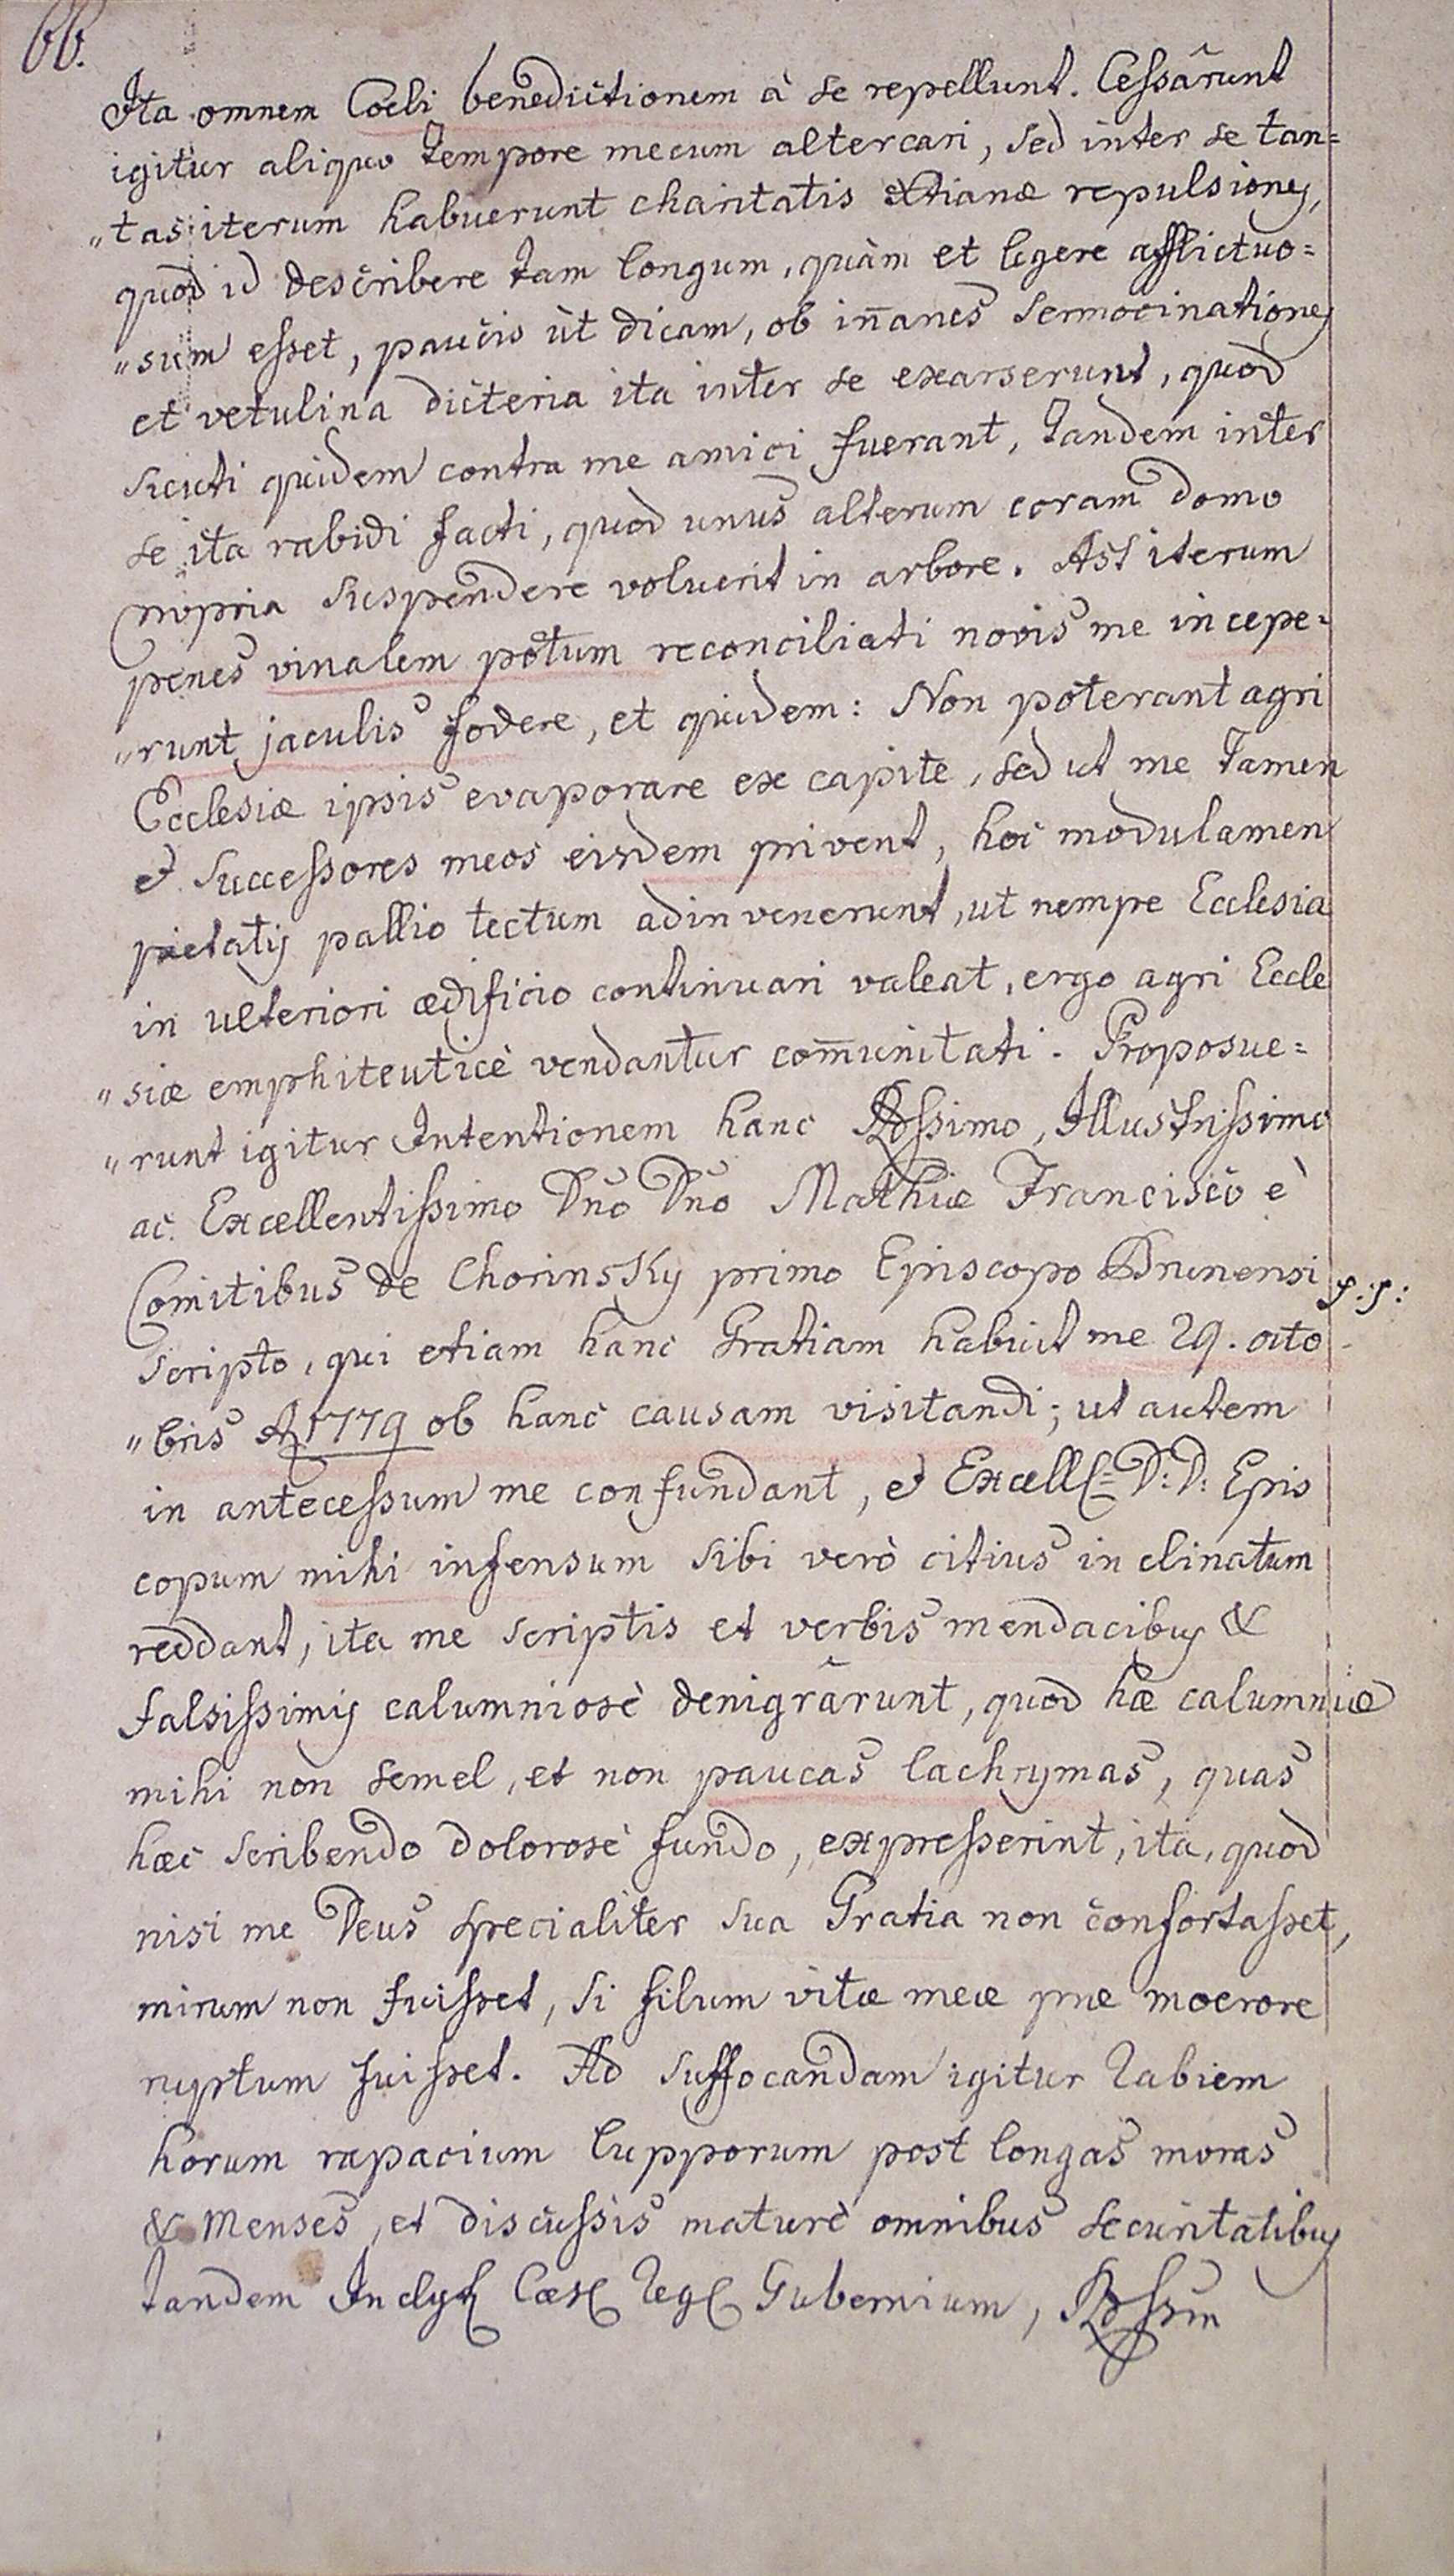 66.
Ita omnem Coeli benedictionem à se repellunt. Cessârunt
igitur aliquo tempore mecum altercari, sed inter se tan=
„tas iterum habuerunt charitatis Xtianæ repulsiones,
quod id describere tam longum, quàm et legere afflictuo=
„sum esset, paucis ùt dicam, ob iñanes sermocinationes
et vetulina dicteria ita inter se exarserunt, quod
sicuti quidem contra me amici fuerant, tandem inter
se ita rabidi facti, quod unus alterum coram domo
propria suspendere voluerit in arbore. Ast iterum
penes vinalem potum reconciliati novis me incepe=
„runt jaculis fodere, et quidem: Non poterant agri
Ecclesiæ ipsis evaporare ex capite, sed ut me tamen
et Successores meos eisdem privent, hoc modulamen
pietatis pallio tectum adinvenerunt, ut nempe Ecclesia
in ulteriori ædificio continuari valeat, ergo agri Eccle
„siæ emphiteuticè vendantur com̄unitati. Proposue=
„runt igitur Intentionem hanc Rdssimo, Illustrissimo
ac Excellentissimo Dño Dño Mathiæ Francisco è
Comitibus de Chorinsky primo Episcopo Brunensi p:p:
scripto, qui etiam hanc Gratiam habuit me 29. octo
„bris A 1779 ob hanc causam visitandi; ut autem
in antecessum me confundant, et Excell= D: D: Epis
copum mihi infensum sibi verò citius inclinatum
reddant, ita me scriptis et verbis mendacibus &
falsissimis calumniosè denigrârunt, quod hæ calumniæ
mihi non semel, et non paucas lachrymas, quas
hæc scribendo dolorosè fundo, expresserint, ita, quod
nisi me Deus specialiter sua Gratia non confortasset,
mirum non fuisset, si filum vitæ meæ præ moerore
ruptum fuisset. Ad suffocandam igitur rabiem
horum rapacium lupporum post longas moras
& Menses, et discussis maturè omnibus securitatibus
tandem Inclyt Cæs Reg Gubernium, Rdssm